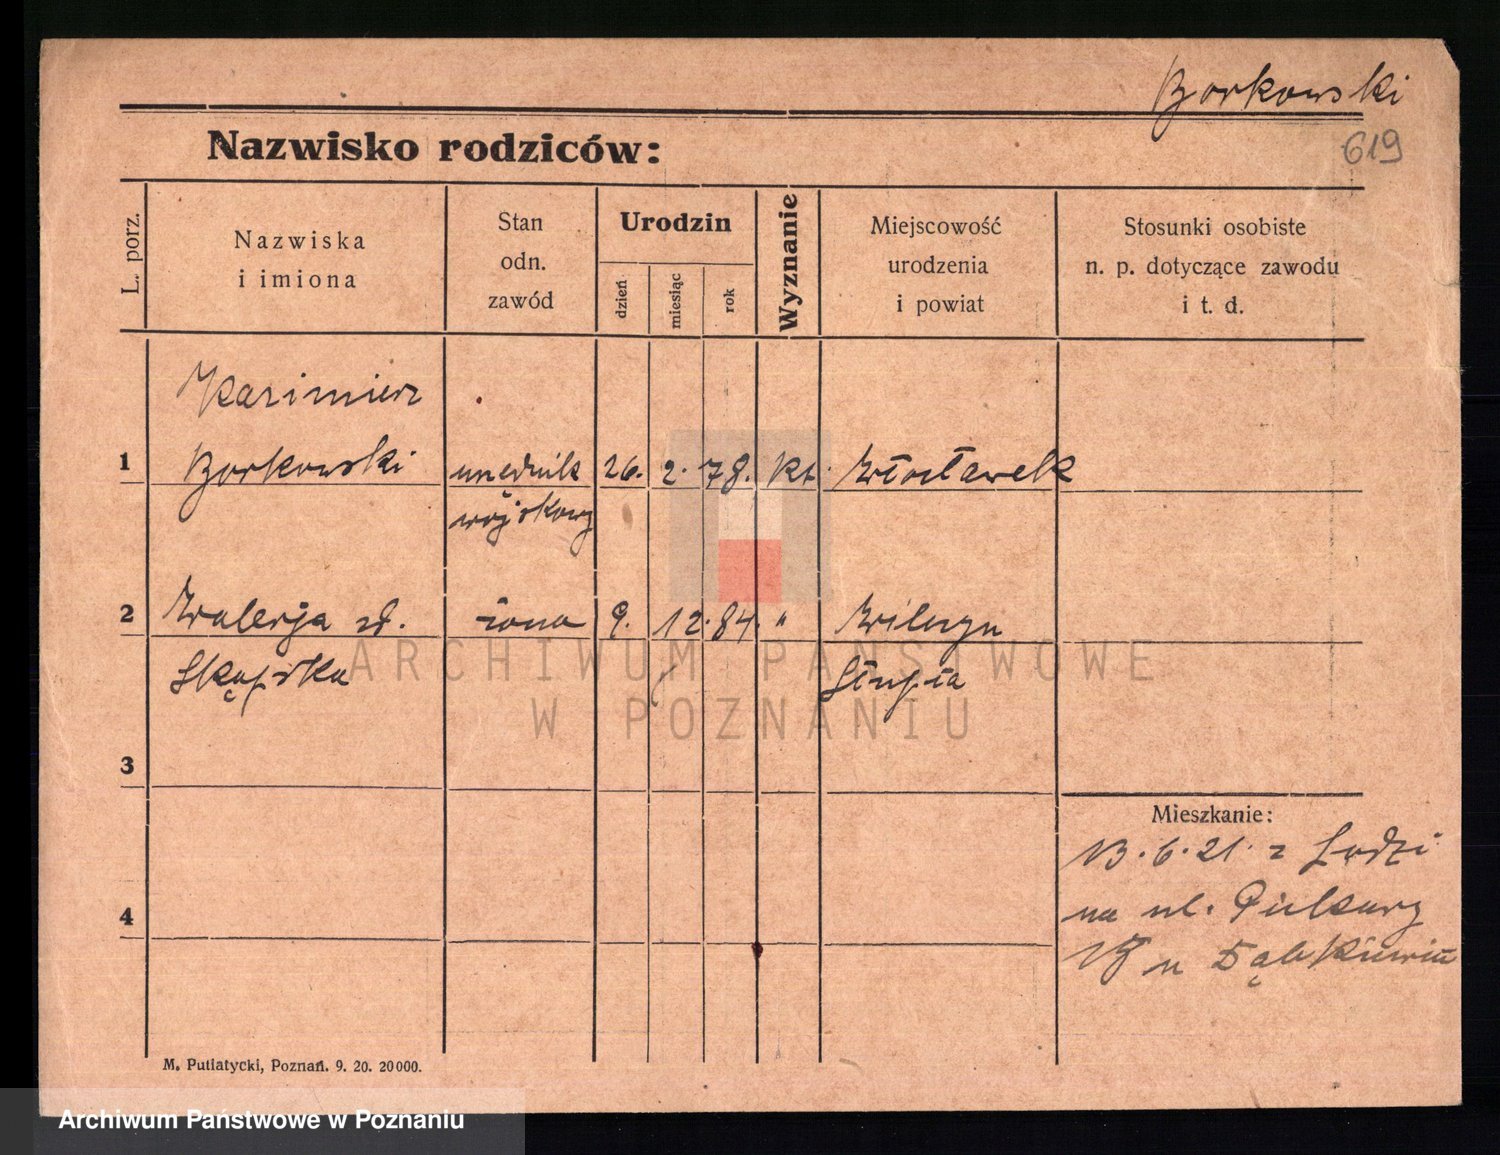 Borkowski
619
Nazwisko rodziców:
L. porz.
Nazwiska
i imiona
Stan
odn.
zawód
Urodzin
dzień
miesiąc
rok
Wyznanie
Miejscowość
urodzenia
i powiat
Stosunki osobiste
n. p. dotyczące zawodu
i t. d.
Kazimierz
1 Borkowski urzędnik 26. 2. 78. kt. Włocławek
wojskowy
2 Walerja żona 9. 12. 84. "
Skąpska
Słupia
ARCHIWUM PAŃSTWOWE
W POZNANIU
3
Mieszkanie:
13. 6. 21. z Łodzi
na ul.
4
M. Putiatycki, Poznań. 9. 20. 20000.
Archiwum Państwowe w Poznaniu